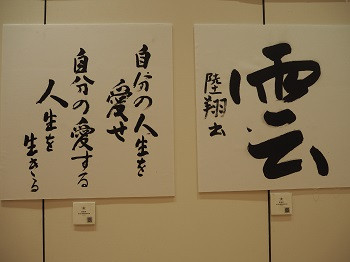 自分の人生を
愛せ
自分の愛する
人生を
生きる
雲
陸翔